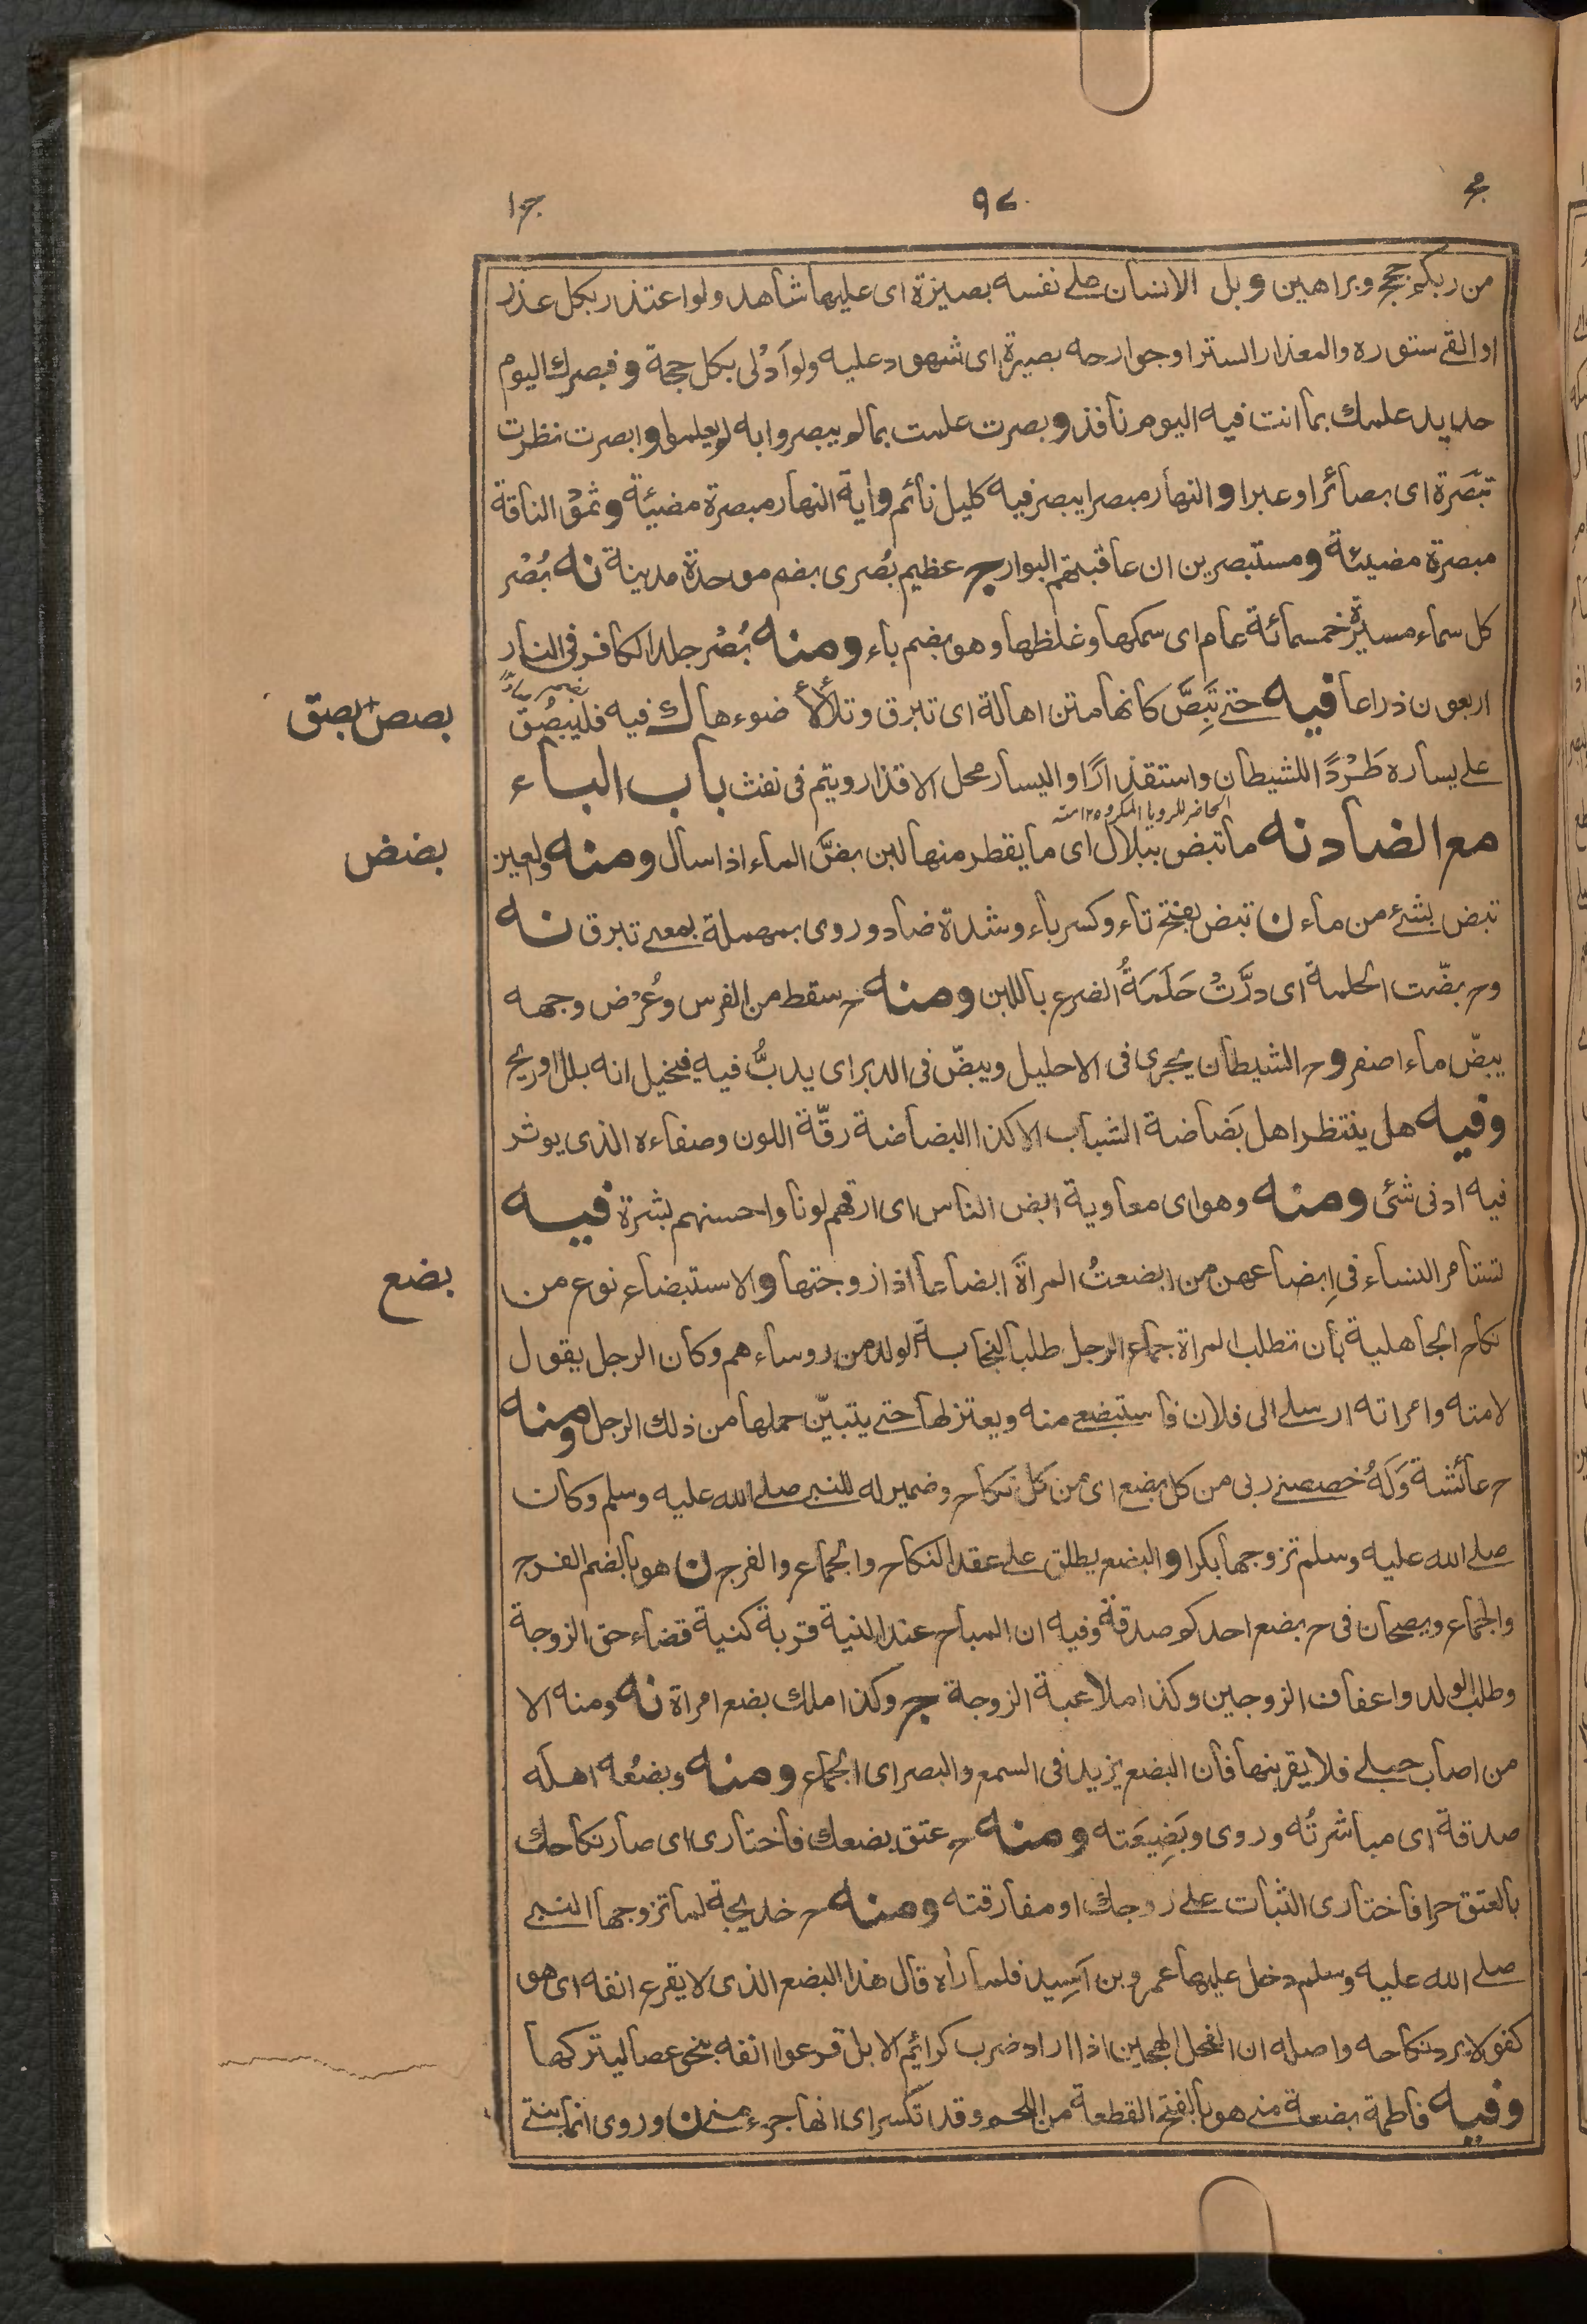 مج
٩٧
ج ١
من ربكم حجج وبراهين و بل الانسان على نفسه بصيرة اى عليها شاهد ولو اعتذر بكل عذر
او القى ستوره والمعذار الستر او جوارحه بصيرة اى شهود عليه ولو اَدْلى بكل حجة و فبصرك اليوم
حديد علمك بما انت فيه اليوم نافذ و بصرت علمت بما لم يبصروا به لم يعلموا و ابصرت نظرت
تبْصَرة اى بصائر او عبرا و النهار مبصرا يبصر فيه كليل نائم و اية النهار مبصرة مضيئة و ثمود الناقة
مبصرة مضيئة و مستبصرين ان عاقبتهم البوار ج عظيم بُصرى بضم موحدة مدينة نه بُصْر
كل سماء مسيرة خمسمائة عام اى سمكها وغلظها وهو بضم باء ومنه بُصْر جلد الكافر فى النار
اربعون ذراعا فيه حتى تَبِصَّ كانها متن اهالة اى تبرق وتلألأ ضوءها ك فيه فليبصُق
بصص+بصق
على يساره طَرْدًا للشيطان واستقذارًا واليسار محل الاقذار ويتم فى نفث باب الباء
الحاضر للرويا المكروه ١٢ منه
مع الضاد نه ما تبض ببلال اى ما يقطر منها لبن بضَّ الماء اذا سال ومنه والعين
بضض
تبض بشئ من ماء ن تبض بفتح تاء وكسر باء وشدة ضاد وروى بمهملة بمعنى تبرق نه
وح بضّت الحلمة اى درَّتْ حَلَمَةُ الضرع باللبن ومنه ح سقط من الفرس وعُرْض وجهه
يبضّ ماء اصفر وح الشيطان يجرى فى الاحليل ويبضّ فى الدبر اى يدبُّ فيه فيخيل انه بلل او ريح
وفيه هل ينتظر اهل بَضَاضة الشباب الا كذا البضاضة رقّة اللون وصفاءه الذى يوثر
فيه ادنى شئ ومنه وهو اى معاوية ابض الناس اى ارقهم لونا واحسنهم بشرة فيه
تستامر النساء فى اِبضاعهن من ابضعتُ المراةَ ابضاعا اذا زوجتها والاستبضاع نوع من
بضع
نكاح الجاهلية بأن تطلب المراة جماع الرجل طلبا لنجابة الولد من روساءهم وكان الرجل يقول
لامته وامراته ارسلى الى فلان فاستبضعى منه ويعتزلها حتى يتبيّن حملها من ذلك الرجل ومنه
ح عائشة وَلَهُ خصصنى ربى من كل بضع اى من كل نكاح وضمير له للنبى صلى الله عليه وسلم وكان
صلى الله عليه وسلم تزوجها بكرا و البضع يطلق على عقد النكاح والجماع والفرج ن هو بالضم الفرج
والجماع ويصحان فى ح بضع احدكم صدقة وفيه ان المباح عند النية قربة كنية قضاء حق الزوجة
وطلب الولد واعفاف الزوجين وكذا ملاعبة الزوجة ج وكذا ملك بضع امراة نه ومنه الا
من اصاب حبلى فلا يقربنها فان البضع يزيد فى السمع والبصر اى الجماع ومنه وبضعُه اهله
صدقة اى مباشرتُه وروى وبَضِيعَته ومنه ح عتق بضعك فاختارى اى صار نكاحك
بالعتق حرا فاختارى الثبات على زوجك او مفارقته ومنه ح خديجة لما تزوجها النبى
صلى الله عليه وسلم دخل عليها عمرو بن اَسِيد فلما رأه قال هذا البضع الذى لا يقرع انفه اى هو
كفو لا يرد نكاحه واصله ان الفحل الهجين اذا اراد ضرب كرائم الابل قرعوا انفه بنحو عصا ليتركها
وفيه فاطمة بضعة منى هو بالفتح القطعة من اللحم وقد تكسر اى انها جزء منى ن وروى انما بنتى